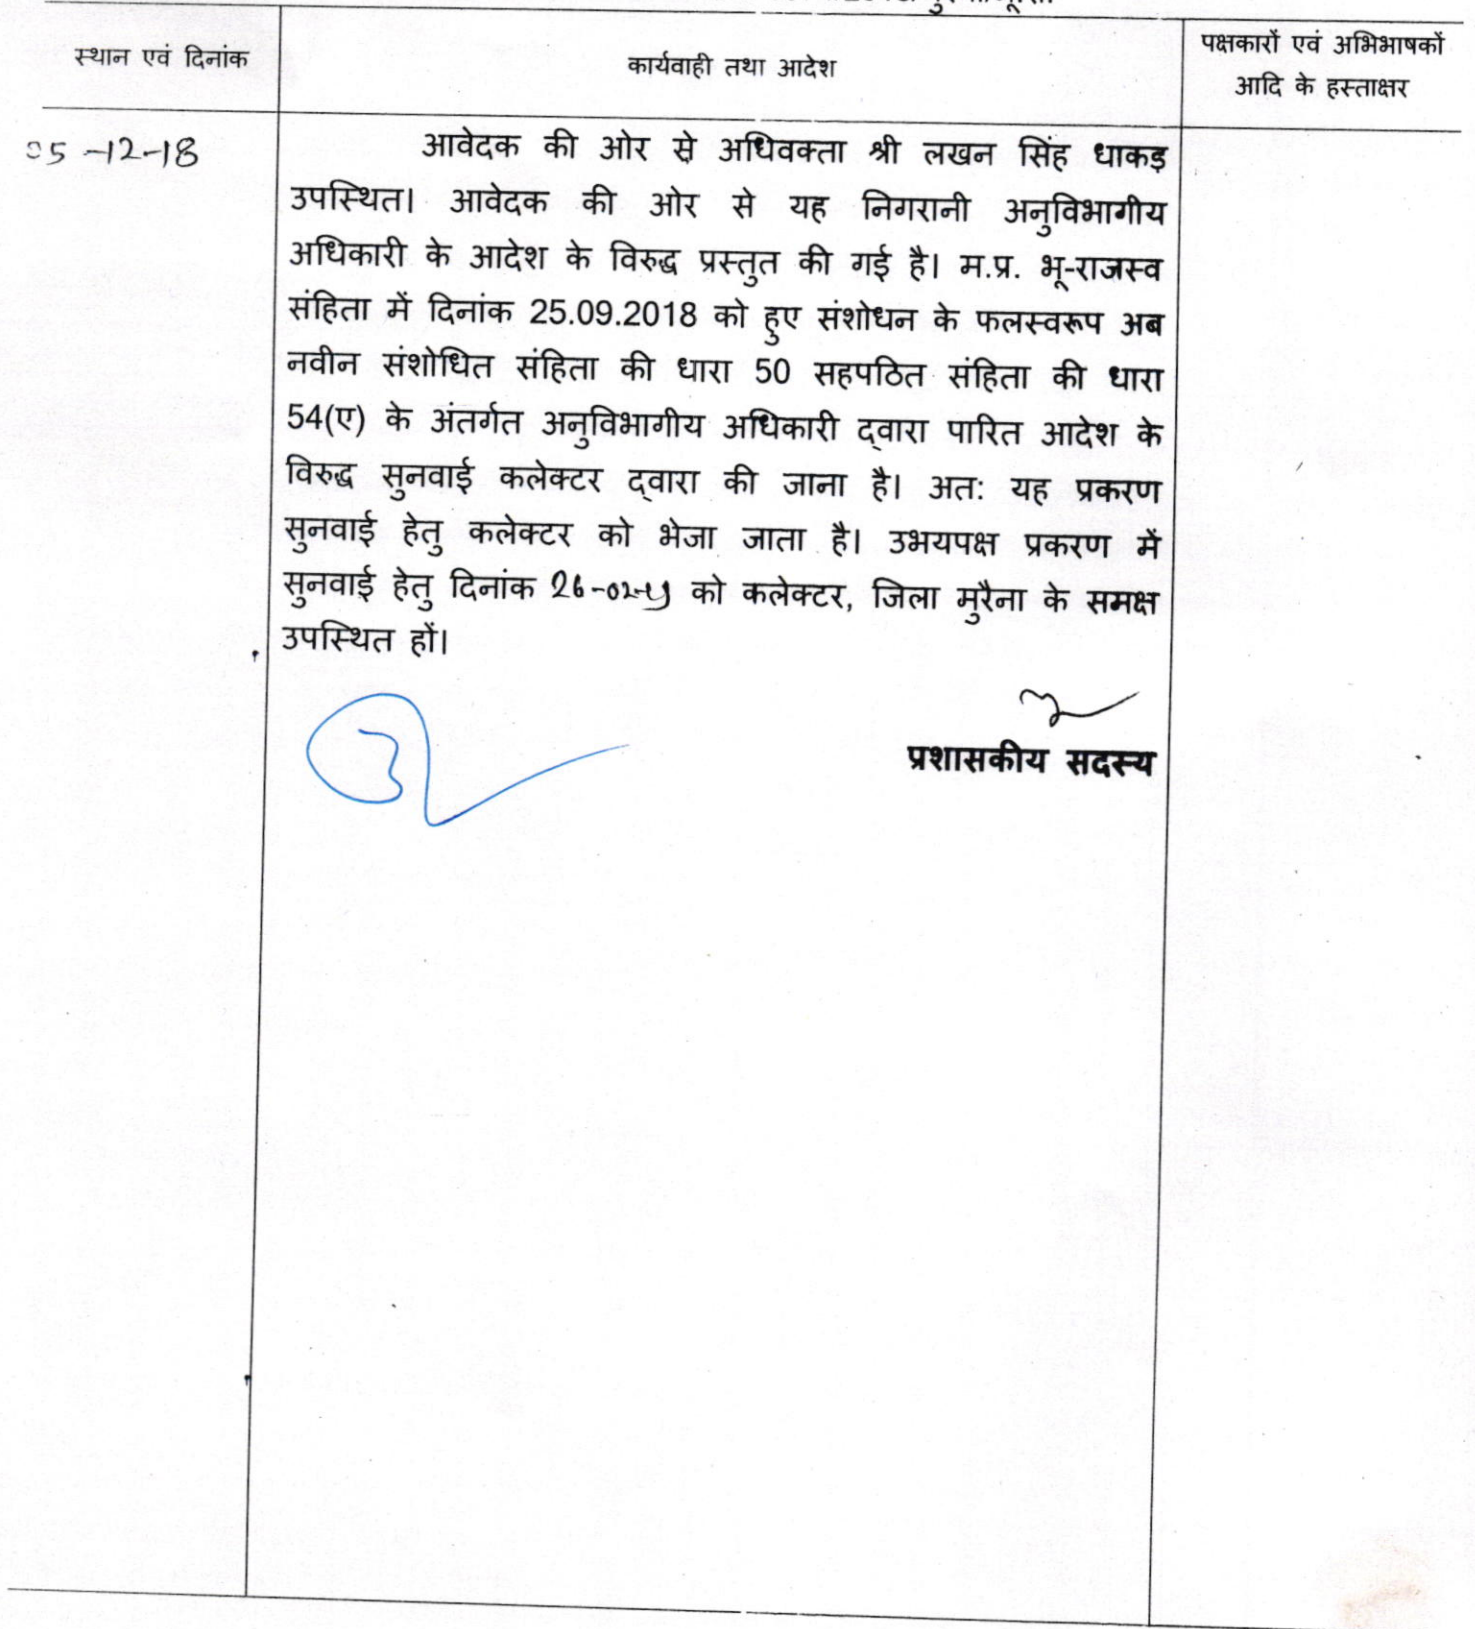 स्थान एवं दिनांक
कार्यवाही तथा आदेश
पक्षकारों एवं अभिभाषकों
आदि के हस्ताक्षर
05-12-18
आवेदक की ओर से अधिवक्ता श्री लखन सिंह धाकड़
उपस्थित। आवेदक की ओर से यह निगरानी अनुविभागीय
अधिकारी के आदेश के विरुद्ध प्रस्तुत की गई है। म.प्र. भू-राजस्व
संहिता में दिनांक 25.09.2018 को हुए संशोधन के फलस्वरूप अब
नवीन संशोधित संहिता की धारा 50 सहपठित संहिता की धारा
54(ए) के अंतर्गत अनुविभागीय अधिकारी द्वारा पारित आदेश के
विरुद्ध सुनवाई कलेक्टर द्वारा की जाना है। अत: यह प्रकरण
सुनवाई हेतु कलेक्टर को भेजा जाता है। उभयपक्ष प्रकरण में
सुनवाई हेतु दिनांक को कलेक्टर, जिला मुरैना के समक्ष
उपस्थित हों।
प्रशासकीय सदस्य